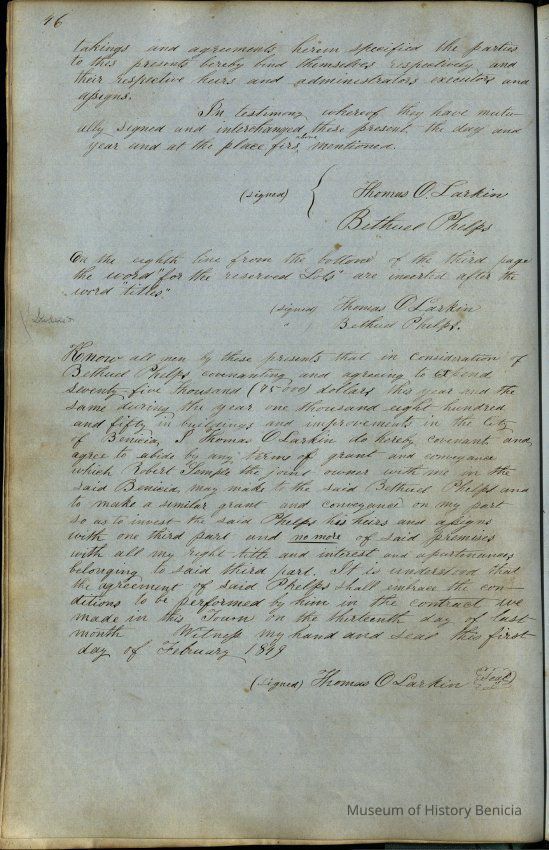 46
takings and agreements herein specified the parties
to this presents hereby bind themselves respectively and
their respective heirs and administrators executors and
assigns.
In testimony whereof they have mutu-
ally signed and interchanged these present the day and
year and at the place first above mentioned.
(signed)
Thomas O. Larkin
Bethuel Phelps
On the eighth line from the bottom of the third page
the word "for the reserved Lots" are inserted after the
word "titles"
(signed) Thomas O Larkin
" Bethuel Phelps.
Know all men by these presents that in consideration of
Bethuel Phelps covenanting and agreeing to expend
seventy five thousand (75000) dollars this year and the
same during the year one thousand eight hundred
and fifty in buildings and improvements in the City
of Benicia, I Thomas O Larkin do hereby covenant and
agree to abide by any terms of grant and conveyance
which Robert Semple the joint owner with me in the
said Benicia, may make to the said Bethuel Phelps and
to make a similar grant and conveyance on my part
so as to invest the said Phelps his heirs and assigns
with one third part and no more of said premises
with all my right title and interest and apurtenances
belonging to said third part. It is understood that
the agreement of said Phelps shall embrace the con-
ditions to be performed by him in the contract we
made in this Town on the thirteenth day of last
month Witness my hand and seal this first
day of February 1849
(signed) Thomas O Larkin (Seal)
Museum of History Benicia